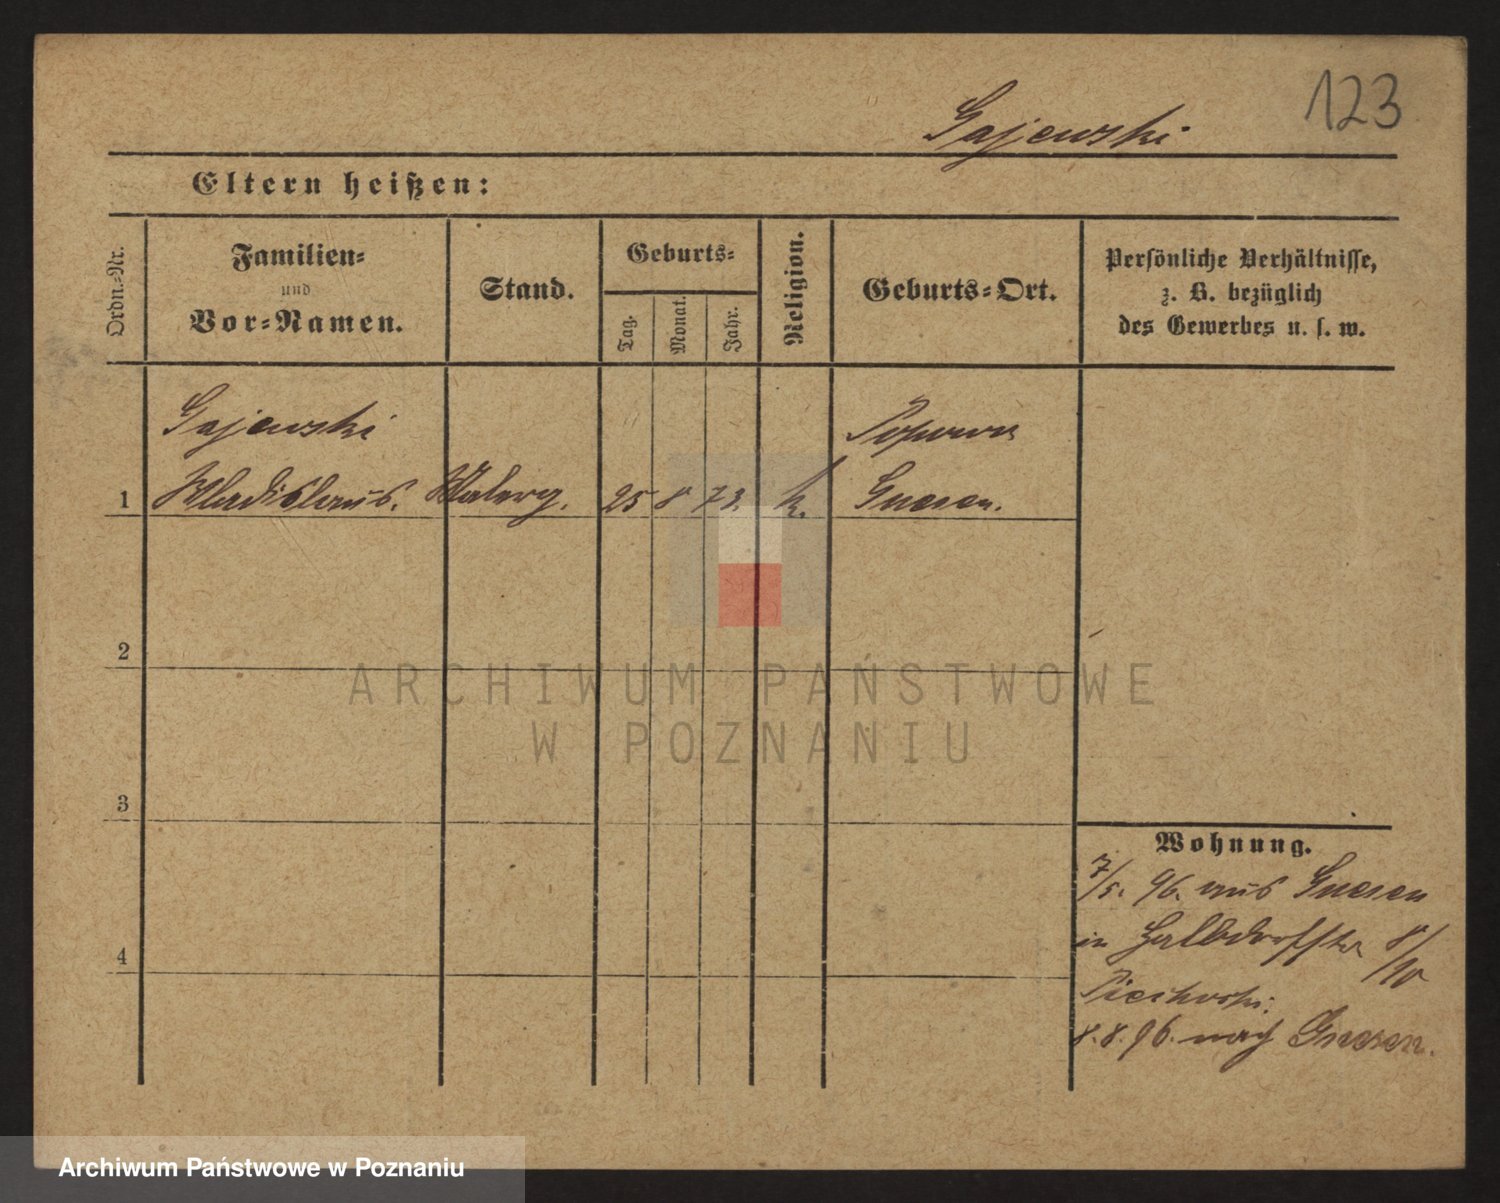 123
Gajewski
Eltern heißen:
Ordn.-Nr.
Familien-
und
Vor-Namen.
Stand.
Geburts-
Tag.
Monat.
Jahr.
Religion.
Geburts-Ort.
Persönliche Verhältnisse,
z. B. bezüglich
des Gewerbes u. s. w.
Gajewski
Wladislaus.
25 8 73. k.
Gnesen.
1
2
3
4
Wohnung.
7/5. 96. aus Gnesen
in Halbdorfstr
8.8.96. nach Gnesen.
ARCHIWUM PAŃSTWOWE
W POZNANIU
Archiwum Państwowe w Poznaniu